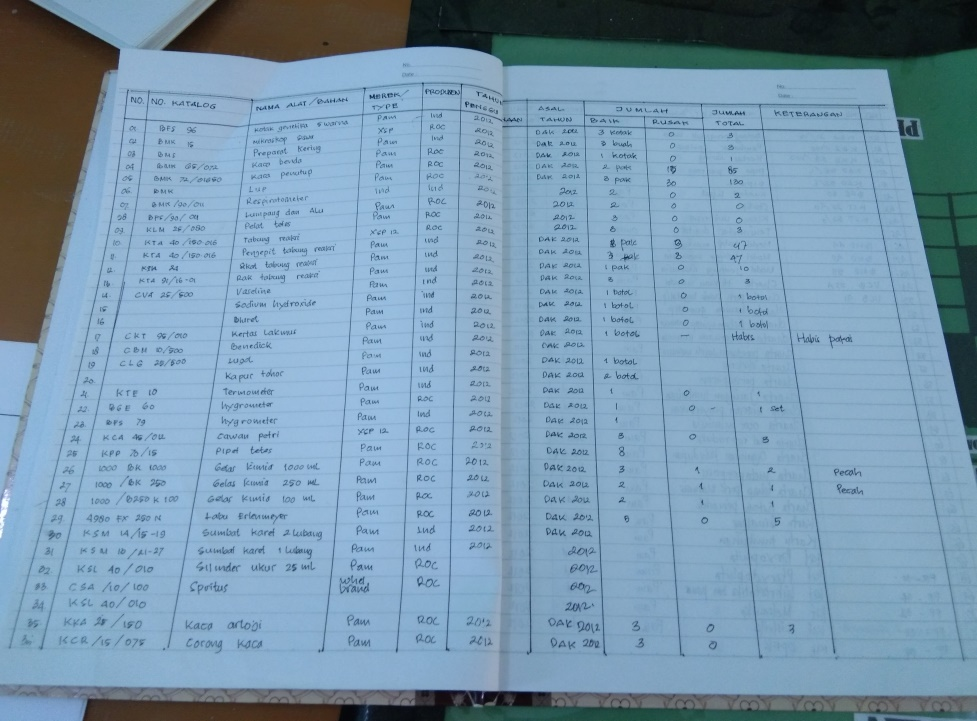 No.
Date
No.
Date
NO. NO. KATALOG NAMA ALAT/BAHAN MEREK/TYPE PRODUSEN TAHUN ASAL TAHUN JUMLAH BAIK RUSAK JUMLAH TOTAL KETERANGAN
01 BFS 96 Pam Ind 2012 DAK 2012 3 kotak 0 3
02 BMK XSP ROC 2012 DAK 2012 3 buah 0 3
03 BMS Preparat Kering Pam Ind 2012 DAK 2012 1 kotak 0 1
04 BMK 65/072 Kaca benda Pam ROC 2012 DAK 2012 2 pak 85
05 BMK 72/01650 Kaca penutup Pam ROC 2012 DAK 2012 3 pak 30
06 BMK Lup Ind Ind 2012 2012 2 0 2
07 BMK/90/04 Respirotometer Pam ROC 2012 2012 2 0 0
08 BPF/90/04 Lumpang dan Alu Pam ROC 2012 2012 3 0 0
09 KLM 25/090 Pelat tetes XSP 12 ROC 2012 2012 0 3
10 KTA 40/150-016 Tabung reaksi Pam Ind 2012 DAK 2012 pak 3 47
11 KTA 40/150-016 Penjepit tabung reaksi Pam Ind 2012 DAK 2012 3 pak 3 47
KTA 24 tabung reaksi Pam Ind 2012 DAK 2012 1 pak 0 10
KTA 91/16-01 Rak tabung reaksi Pam Ind 2012 DAK 2012 3 0 3
14 CVA 25/500 Vaseline Pam Ind 2012 DAK 2012 1 botol 0 1 botol
15 Sodium hydroxide Pam Ind 2012 DAK 2012 1 botol 0 1 botol
16 Biuret Pam Ind 2012 DAK 2012 1 botol 0 1 botol
17 CKT 95/010 Kertas Lakmus Pam Ind 2012 DAK 2012 1 botol Habis Habis pakai
18 CBM 10/500 Benedick Pam Ind 2012 DAK 2012
19 CLG 25/500 Lugol Pam Ind 2012 DAK 2012 1 botol
20. Kapur tohor Pam Ind 2012 DAK 2012 2 botol
21. KTE 10 Termometer Pam ROC 2012 DAK 2012 1 0 1
22. BGE 60 hygrometer Pam Ind 2012 DAK 2012 1 0 - 1 set
23. BFS 79 hygrometer XSP 12 ROC 2012 DAK 2012 1
24. KCA 45/012 Cawan petri Pam ROC 2012 DAK 2012 3 0 3
25 KPP 70/15 Pipet tetes Pam ROC 2012 DAK 2012 8
26 1000 BK 1000 Gelas Kimia 1000 mL Pam ROC 2012 DAK 2012 3 1 2 Pecah
27 1000 /BK 250 Gelas Kimia 250 mL Pam ROC 2012 DAK 2012 2 1 1 Pecah
28 1000 /B250 K 100 Gelas Kimia 100 mL Pam ROC 2012 DAK 2012 2 1 1
29 4980 FK 250 N Labu Erlenmeyer Pam ROC 2012 DAK 2012 5 0 5
30 KSM 14/15-19 Sumbat karet 2 lubang Pam Ind 2012 DAK 2012
31 KSM 16/21-27 Sumbat karet 1 lubang Pam Ind 2012 2012
32 KSL 40/010 Silinder ukur 25 mL Pam ROC 2012
33 CSA /10/100 Spiritus ROC 2012
34 KSL 40/010 2012
35 KKA 25/150 Kaca arloji Pam ROC 2012 DAK 2012 3 0 3
36 KCR /15/075 Corong Kaca Pam ROC 2012 DAK 2012 3 0